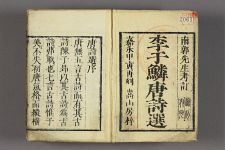 南郭先生考訂
李于鱗唐詩選
嘉永甲寅再刻
嵩山房梓
唐詩選序
唐無五言古詩而有其古
詩陳子昂以其古詩爲古
詩弗取也七言古詩惟子
美不失初唐氣格而縱横